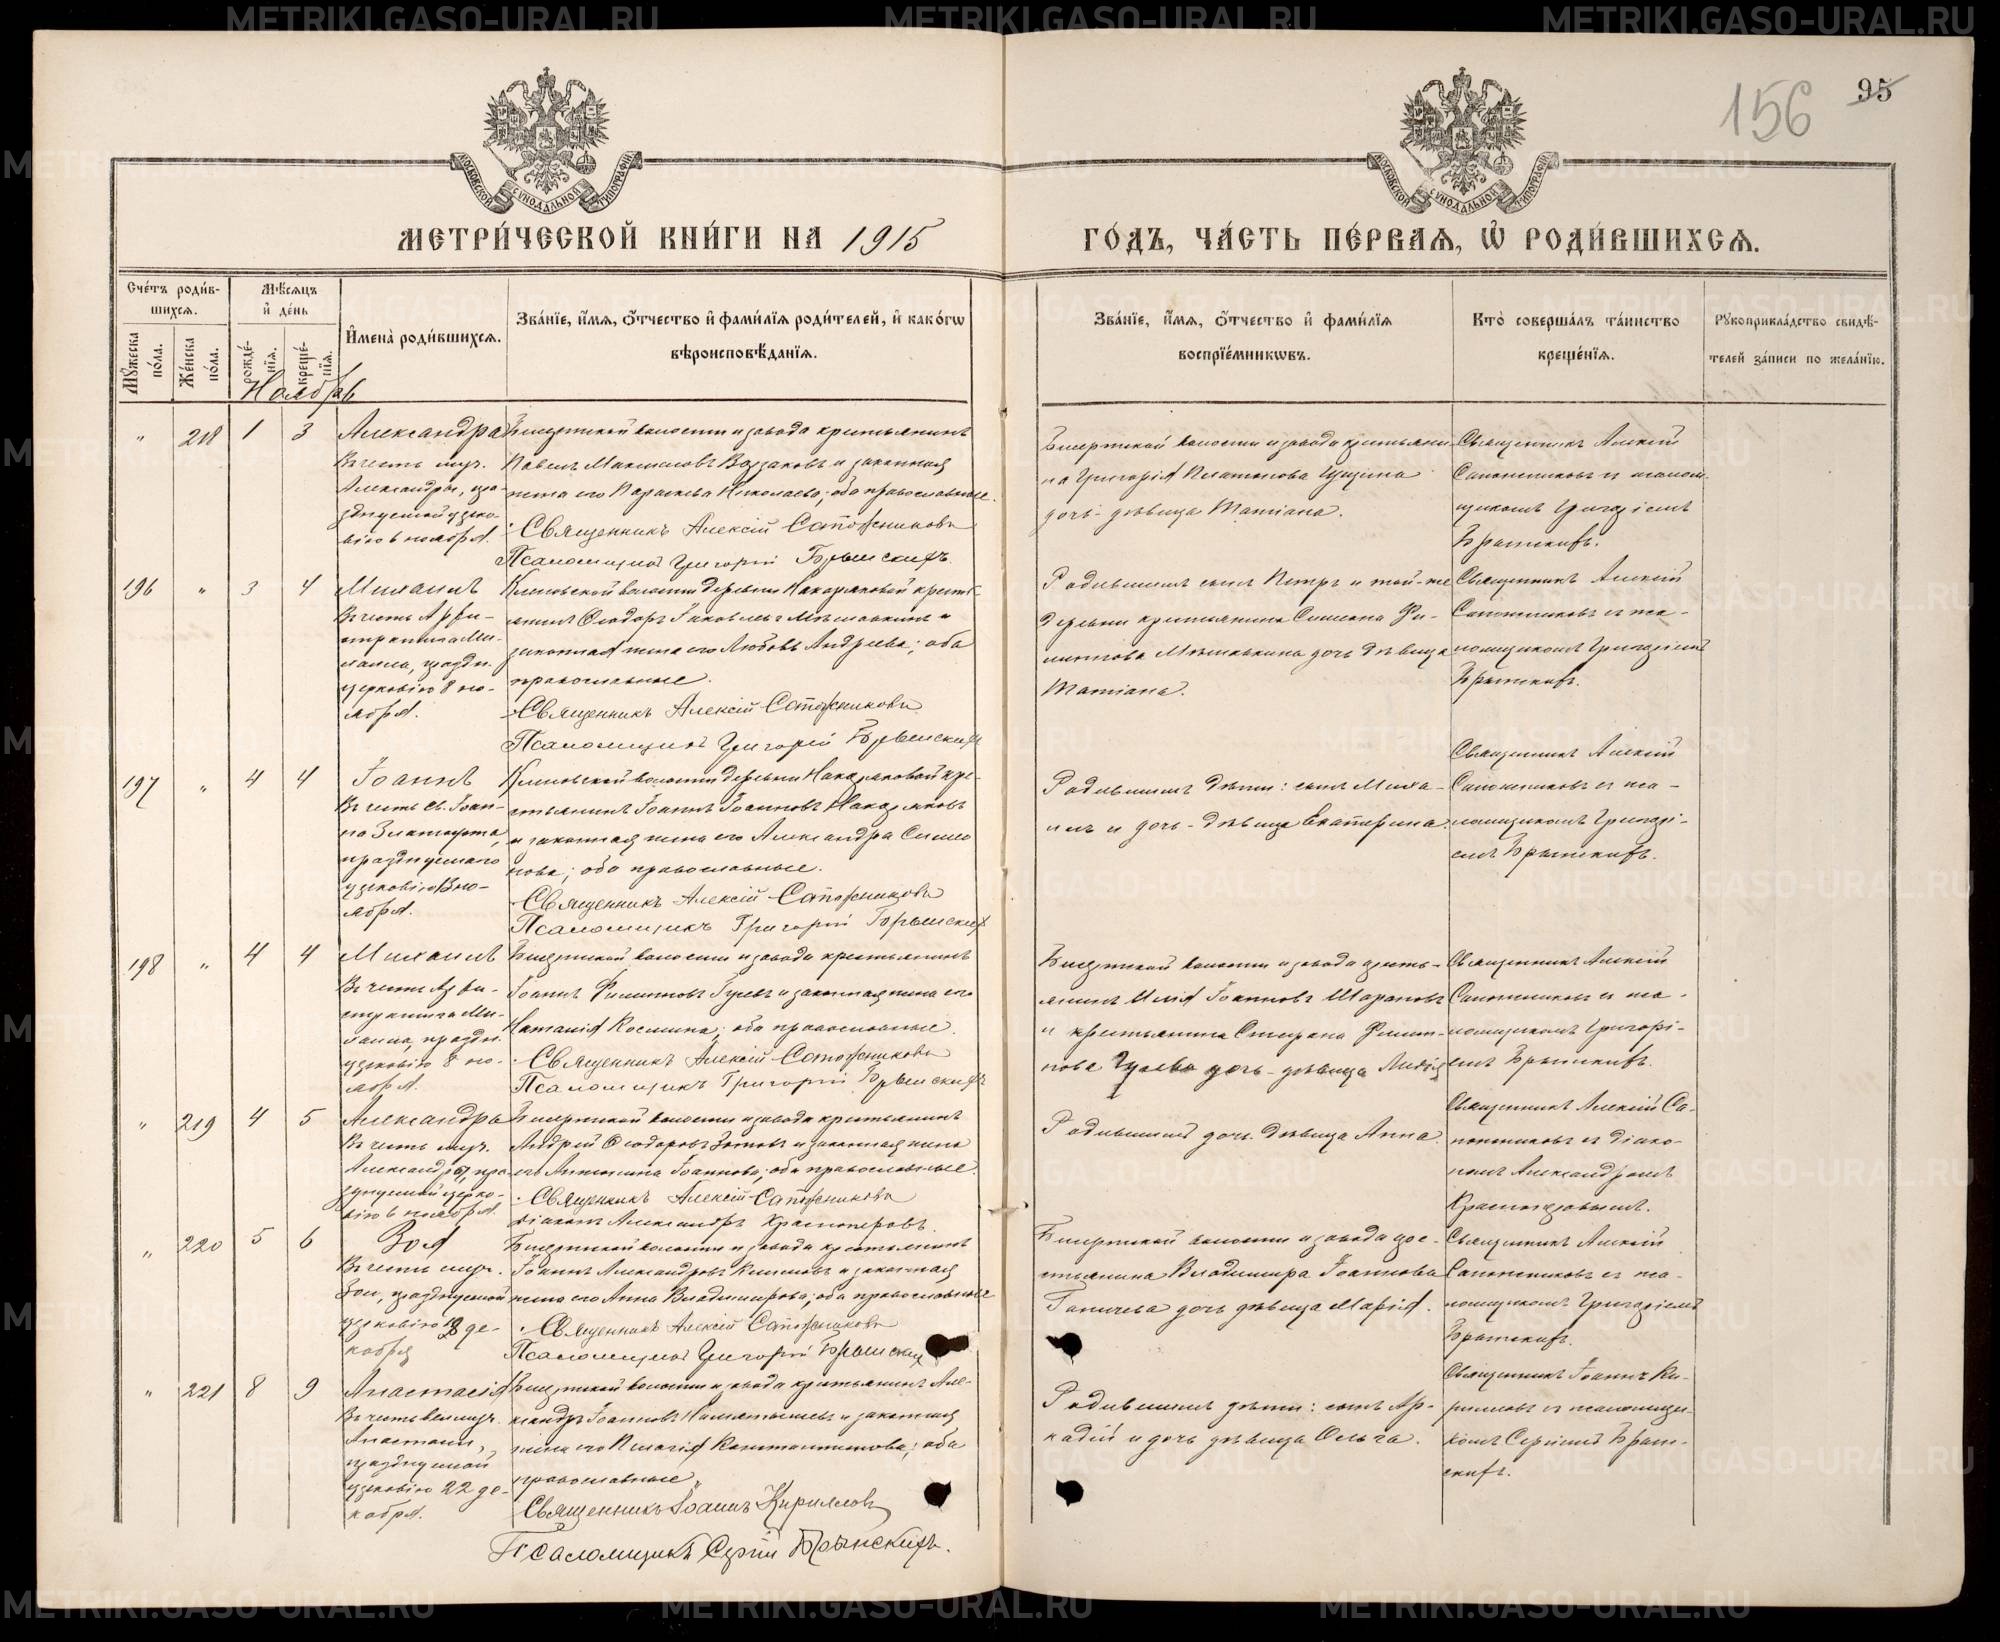 156
95
МОСКОВСКОЙ СѴНОДАЛЬНОЙ ТИПОГРАФІИ
МОСКОВСКОЙ СѴНОДАЛЬНОЙ ТИПОГРАФІИ
МЕТРИ́ЧЕСКОЙ КНИ́ГИ НА 1915
ГО́ДЪ, ЧА́СТЬ ПЕ́РВАЯ, Ѡ РОДИ́ВШИХСЯ.
Сче́тъ роди́в-
шихся.
Мѣ́сяцъ
и҆ де́нь
Мꙋ́жеска по́ла.
Же́нска по́ла.
рожде́-
нїя.
креще́-
нїя.
И҆мена̀ роди́вшихся.
Зва́нїе, и҆́мя, ѻ҆́тчество и҆ фами́лїя роди́телей, и҆ како́гѡ
вѣроисповѣ́данїя.
Зва́нїе, и҆́мя, ѻ҆́тчество и҆ фами́лїя
воспрїе́мникѡвъ.
Кто̀ соверша́лъ та́инство
креще́нїя.
Рꙋкоприкла́дство свидѣ́-
телей за́писи по жела́нїю.
Ноябрь
" 218 1 3 Александра
Въ честь муч.
Александры, пра-
вію 6 ноября.
Бисертской волости и завода крестьянинъ
Павелъ Максимовъ и законная
жена его Параскева Николаева; оба православные.
Священникъ Алексій Сапожниковъ
Псаломщикъ Григорій
Бисертской волости и завода крестьяни-
на Григорія Платонова
дочь-дѣвица Татіана.
Священникъ Алексій
Сапожниковъ съ псалом-
щикомъ Григоріемъ
196 " 3 4 Михаилъ
Въ честь Архи-
стратига Ми-
хаила, праздн.
церковію 8 но-
ября.
Кленовской волости деревни крестья-
янинъ Ѳеодоръ Яковлевъ и
законная жена его Любовь Андреева; оба
православные.
Священникъ Алексій Сапожниковъ
Псаломщикъ Григорій
Родившимъ сынъ Петръ и той-же
деревни крестьянина Симеона Фи-
липпова дочь дѣвица
Татіана.
Священникъ Алексій
Сапожниковъ съ пса-
ломщикомъ Григоріемъ
197 " 4 4 Іоаннъ
Въ честь св. Іоан-
на Златоуста,
празднуемаго
церковію 13 но-
ября.
Кленовской волости деревни кре-
стьянинъ Іоаннъ Іоанновъ
и законная жена его Александра Симео
нова; оба православные.
Священникъ Алексій Сапожниковъ
Псаломщикъ Григорій
Родившимъ дѣти: сынъ Миха-
илъ и дочь-дѣвица Екатерина.
Священникъ Алексій
Сапожниковъ съ пса-
ломщикомъ Григорі-
емъ
198 " 4 4 Михаилъ
Въ честь Архи-
стратига Ми-
хаила, праздн.
церковію 8 но-
ября.
Бисертской волости и завода крестьянинъ
Іоаннъ Филипповъ и законная жена его
Наталія Космина; оба православные.
Священникъ Алексій Сапожниковъ
Псаломщикъ Григорій
Бисертской волости и завода кресть-
янинъ Илія Іоанновъ Шараповъ
и крестьянина Стефана Филип-
пова дочь-дѣвица Лидія
Священникъ Алексій
Сапожниковъ съ пса-
ломщикомъ Григорі-
емъ
" 219 4 5 Александра
Въ честь муч.
Александры, пра-
зднуемой церко-
вію 6 ноября.
Бисертской волости и завода крестьянинъ
Андрей Ѳеодоровъ Зотовъ и законная жена
его Антонина Іоаннова; оба православные.
Священникъ Алексій Сапожниковъ
Діаконъ Александръ Красноперовъ.
Родившимъ дочь дѣвица Анна.
Священникъ Алексій Са-
пожниковъ съ діако-
номъ Александромъ
Красноперовымъ.
" 220 5 6 Зоя
Въ честь муч.
Зои, празднуемой
церковію 18 де-
кабря
Бисертской волости и завода крестьянинъ
Іоаннъ Александровъ и законная
жена его Анна Владимирова; оба православные
Священникъ Алексій Сапожниковъ
Псаломщикъ Григорій
Бисертской волости и завода кре-
стьянина Владимира Іоаннова
дочь дѣвица Марія.
Священникъ Алексій
Сапожниковъ съ пса-
ломщикомъ Григоріемъ
" 221 8 9 Анастасія
Въ честь великомуч.
Анастасіи,
празднуемой
церковію 22 де-
кабря.
Бисертской волости и завода крестьянинъ Але-
ксандръ Іоанновъ и законная
жена его Пелагія Константинова; оба
православные.
Священникъ Іоаннъ Кирилловъ
Псаломщикъ Сергій
Родившимъ дѣти: сынъ Ар-
кадій и дочь дѣвица Ольга.
Священникъ Іоаннъ Ки-
рилловъ съ псаломщи-
комъ Сергіемъ
METRIKI.GASO-URAL.RU